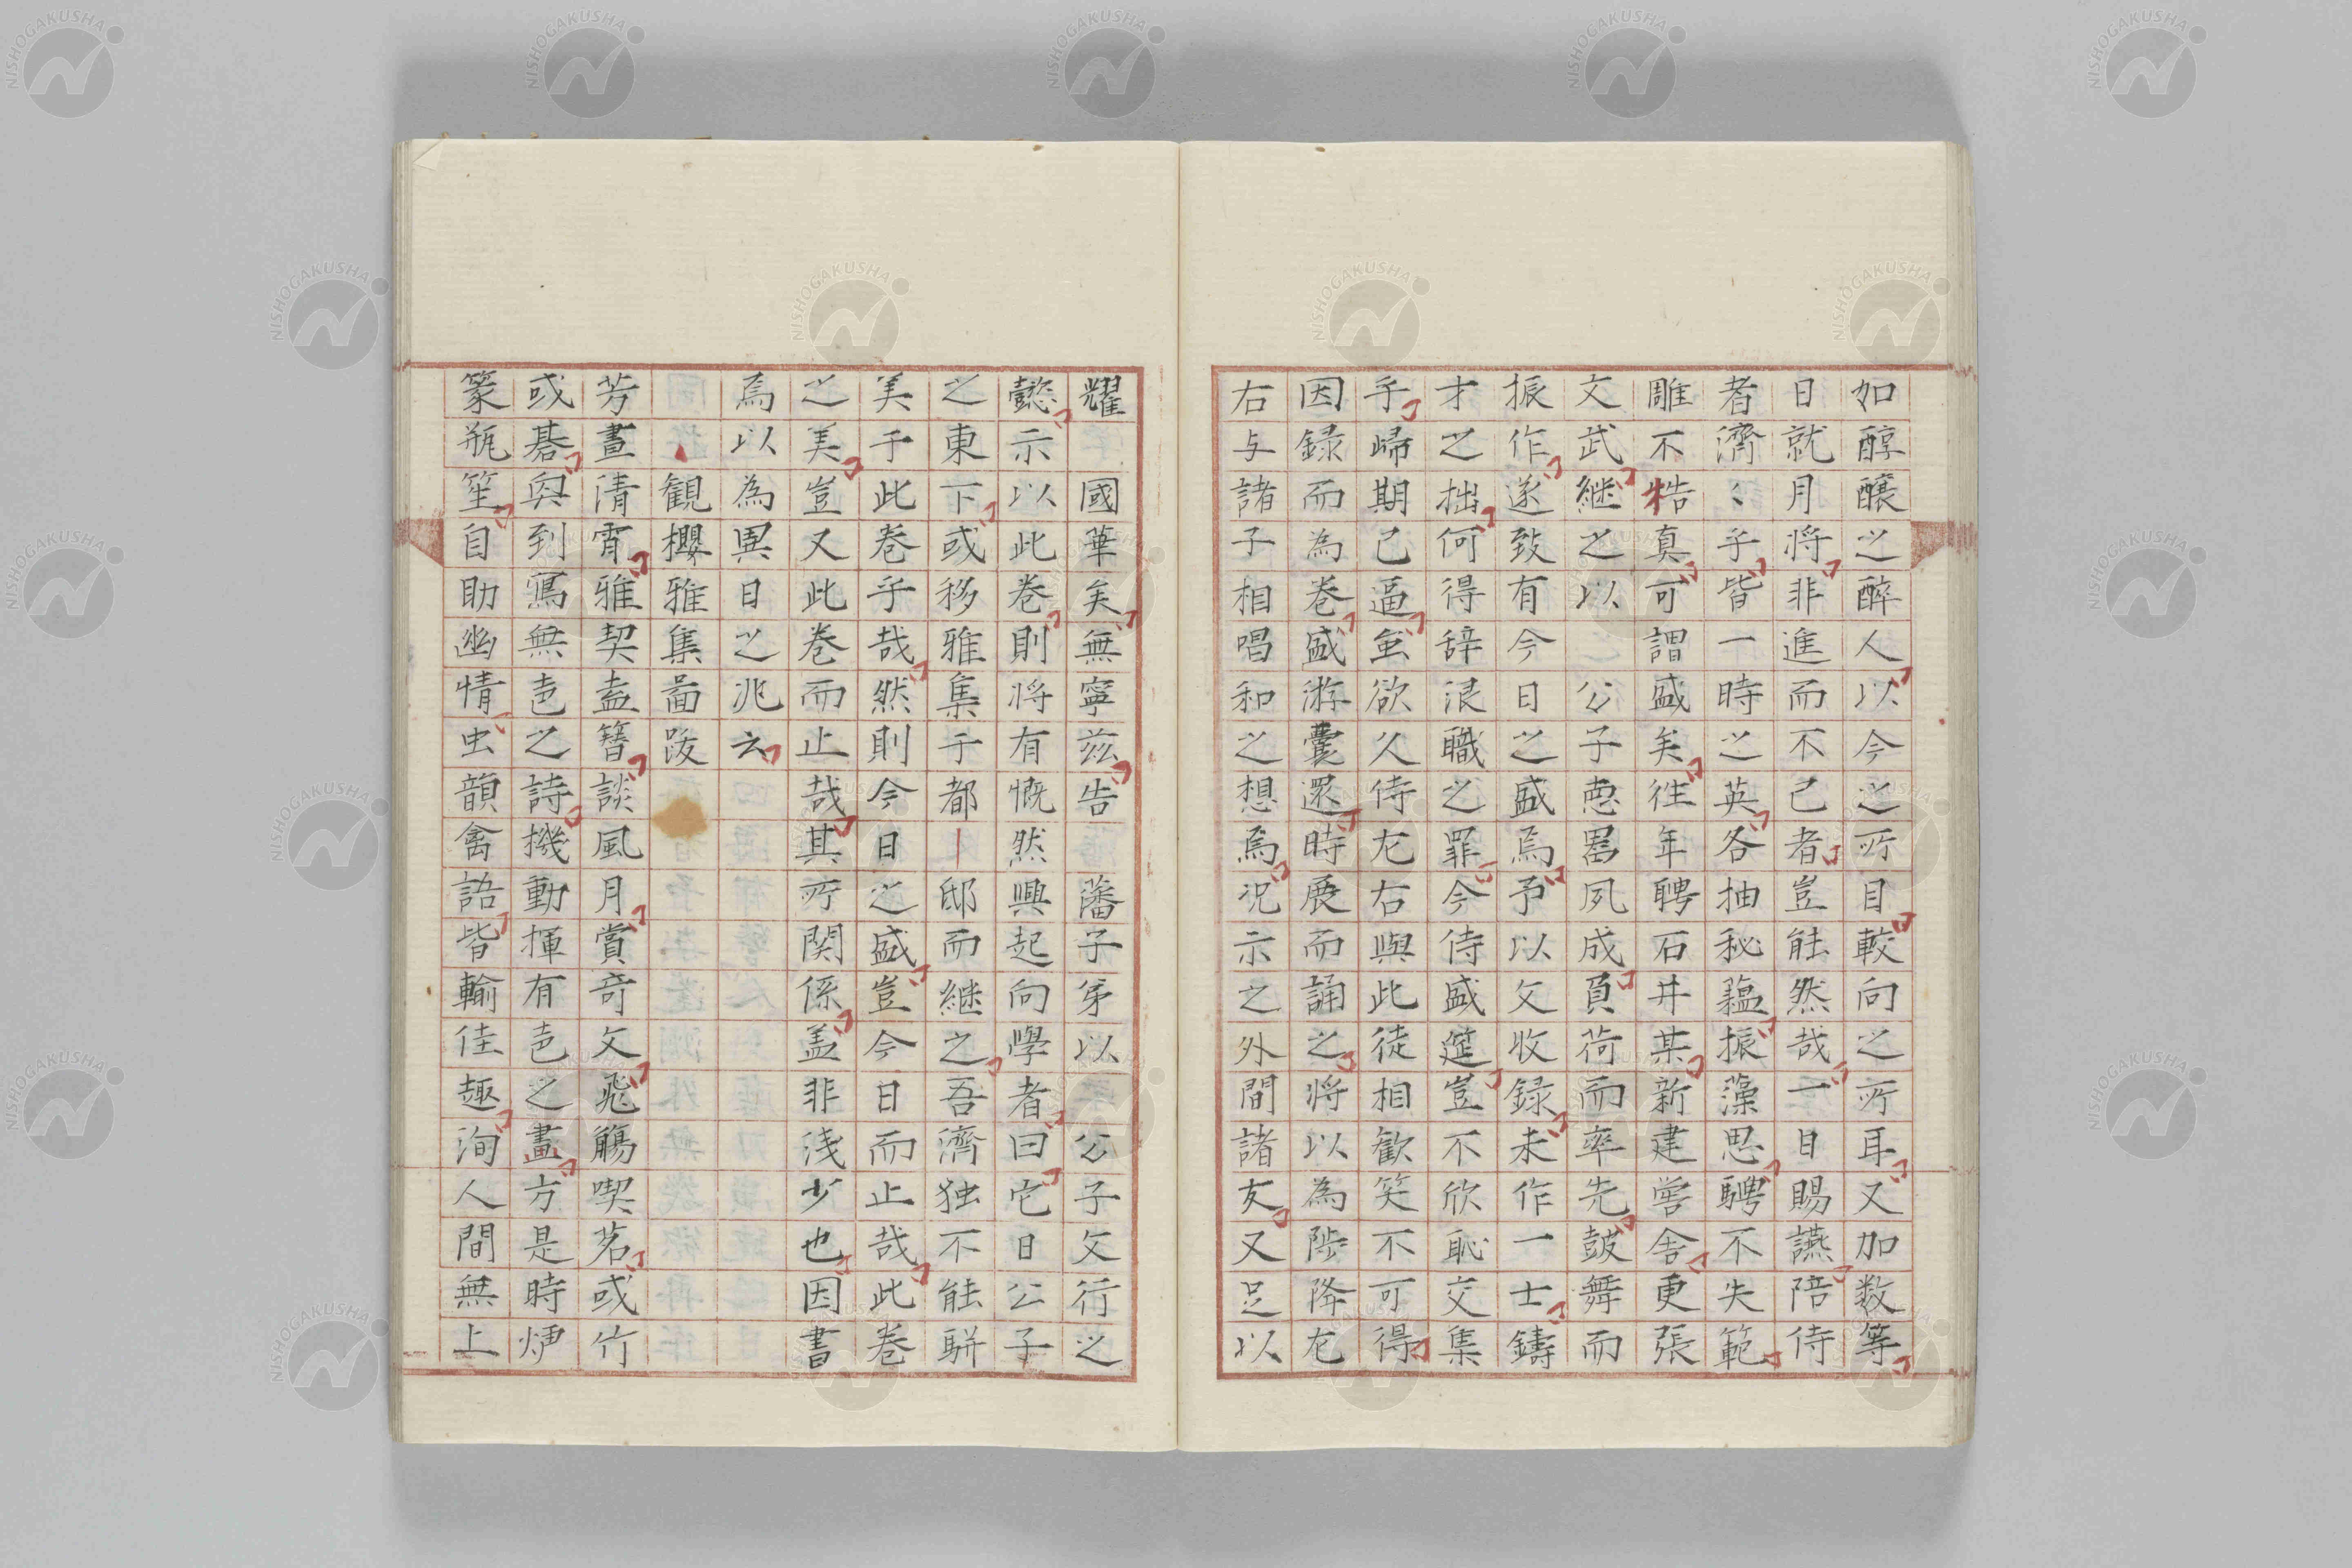 如醇醸之酔人以今之所目較向之所耳又加数等
日就月将非進而不已者豈能然哉一日賜讌陪侍
者濟〻子皆一時之英各抽秘蘊振藻思騁不失範
雕不牿真可謂盛矣往年聘石井某新建黌舎更張
文武継之以　公子悳器夙成負荷而率先皷舞而
振作遂致有今日之盛焉予以文收録未作一士鑄
才之拙何得辞浪職之罪今侍盛筵豈不欣恥交集
乎歸期已逼虽欲久侍左右與此徒相歓笑不可得
因録而為巻盛游曩還時展而誦之将以為陟降左
右与諸子相唱和之想焉况示之外間諸友又足以
耀　國華矣無寧茲告　藩子弟以　公子文行之
懿示以此巻則将有慨然興起向學者曰它日公子
之東下或移雅集于都邸而継之吾濟独不能駢
美于此巻乎哉然則今日之盛豈今日而止哉此巻
之美豈又此巻而止哉其所関係盖非浅少也因書
焉以為異日之兆云
観櫻雅集啚跋
芳晝清霄雅契盍簪談風月賞奇文飛觴喫茗或竹
或碁與到寫無色之詩機動揮有色之畫方是時爐
篆瓶笙自助幽情虫韻禽語皆輸佳趣洵人間無上
NISHOGAKUSHA